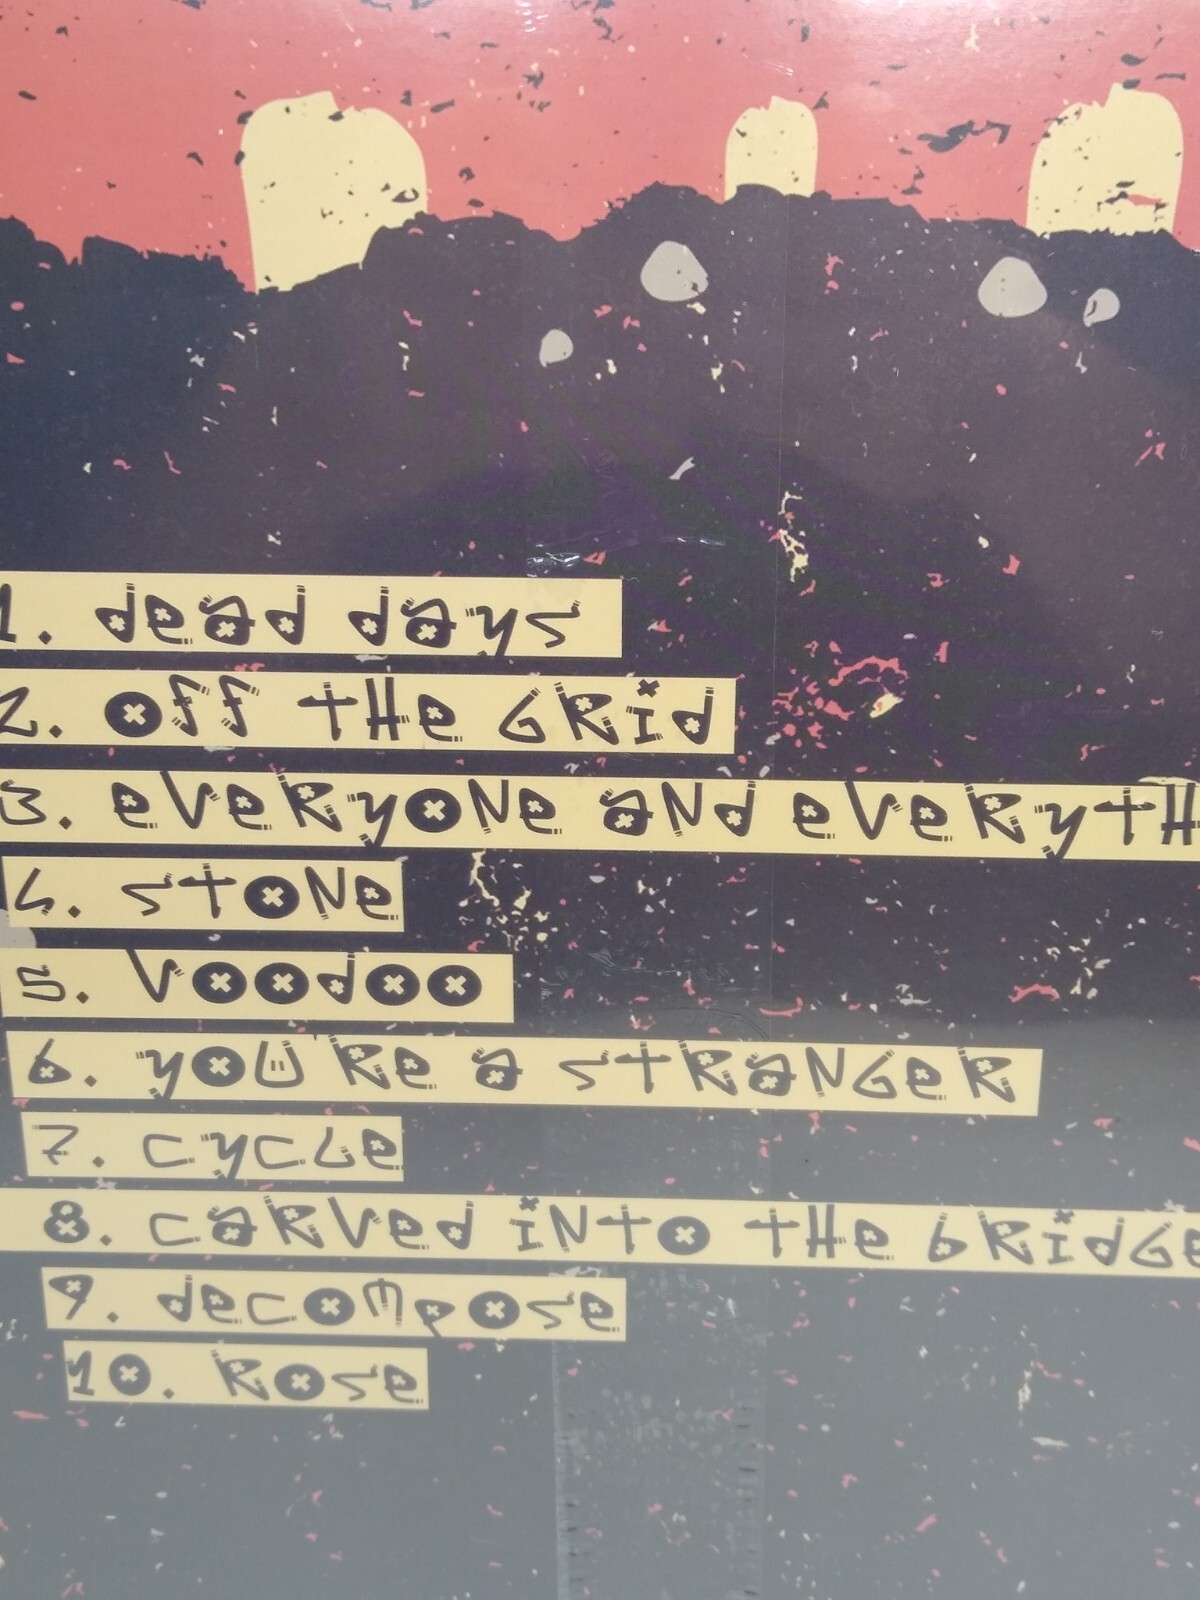 1. dead days
2. off the grid
3. everyone and everyth
4. stone
5. voodoo
6. you're a stranger
7. cycle
8. carved into the bridge
9. decompose
10. rose